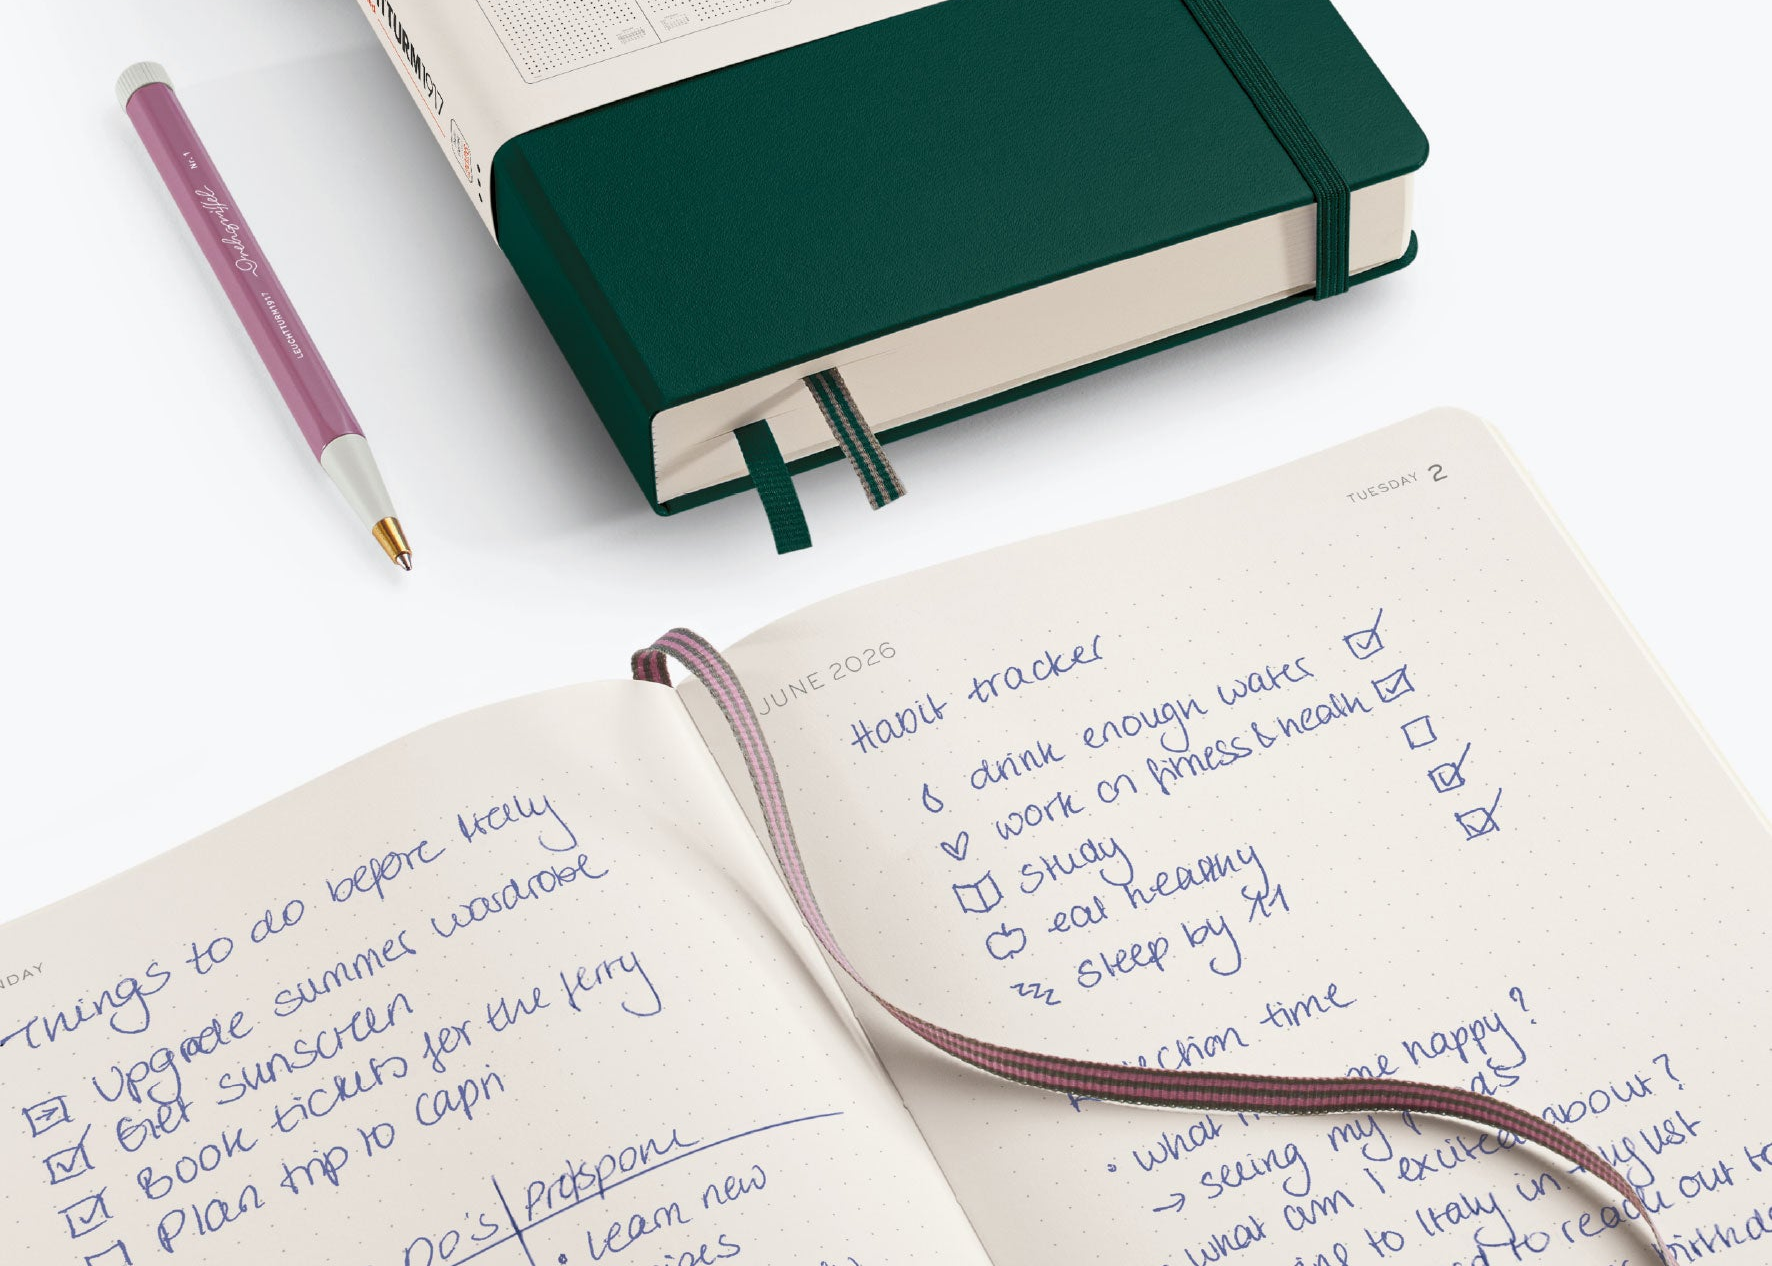 TTURM1917
Nr. 1
Drehgriffel
LEUCHTTURM1917
TUESDAY 2
JUNE 2026
Habit tracker
drink enough water
work on fitness & health
study
eat healthy
sleep by 11
time
me happy?
what
→ seeing my
what am I excited about?
to Italy in August
to reach out to
NDAY
Things to do before Italy
Upgrade summer wardrobe
Get sunscreen
Book tickets for the ferry
Plan trip to Capri
DO's
Postpone
• learn new